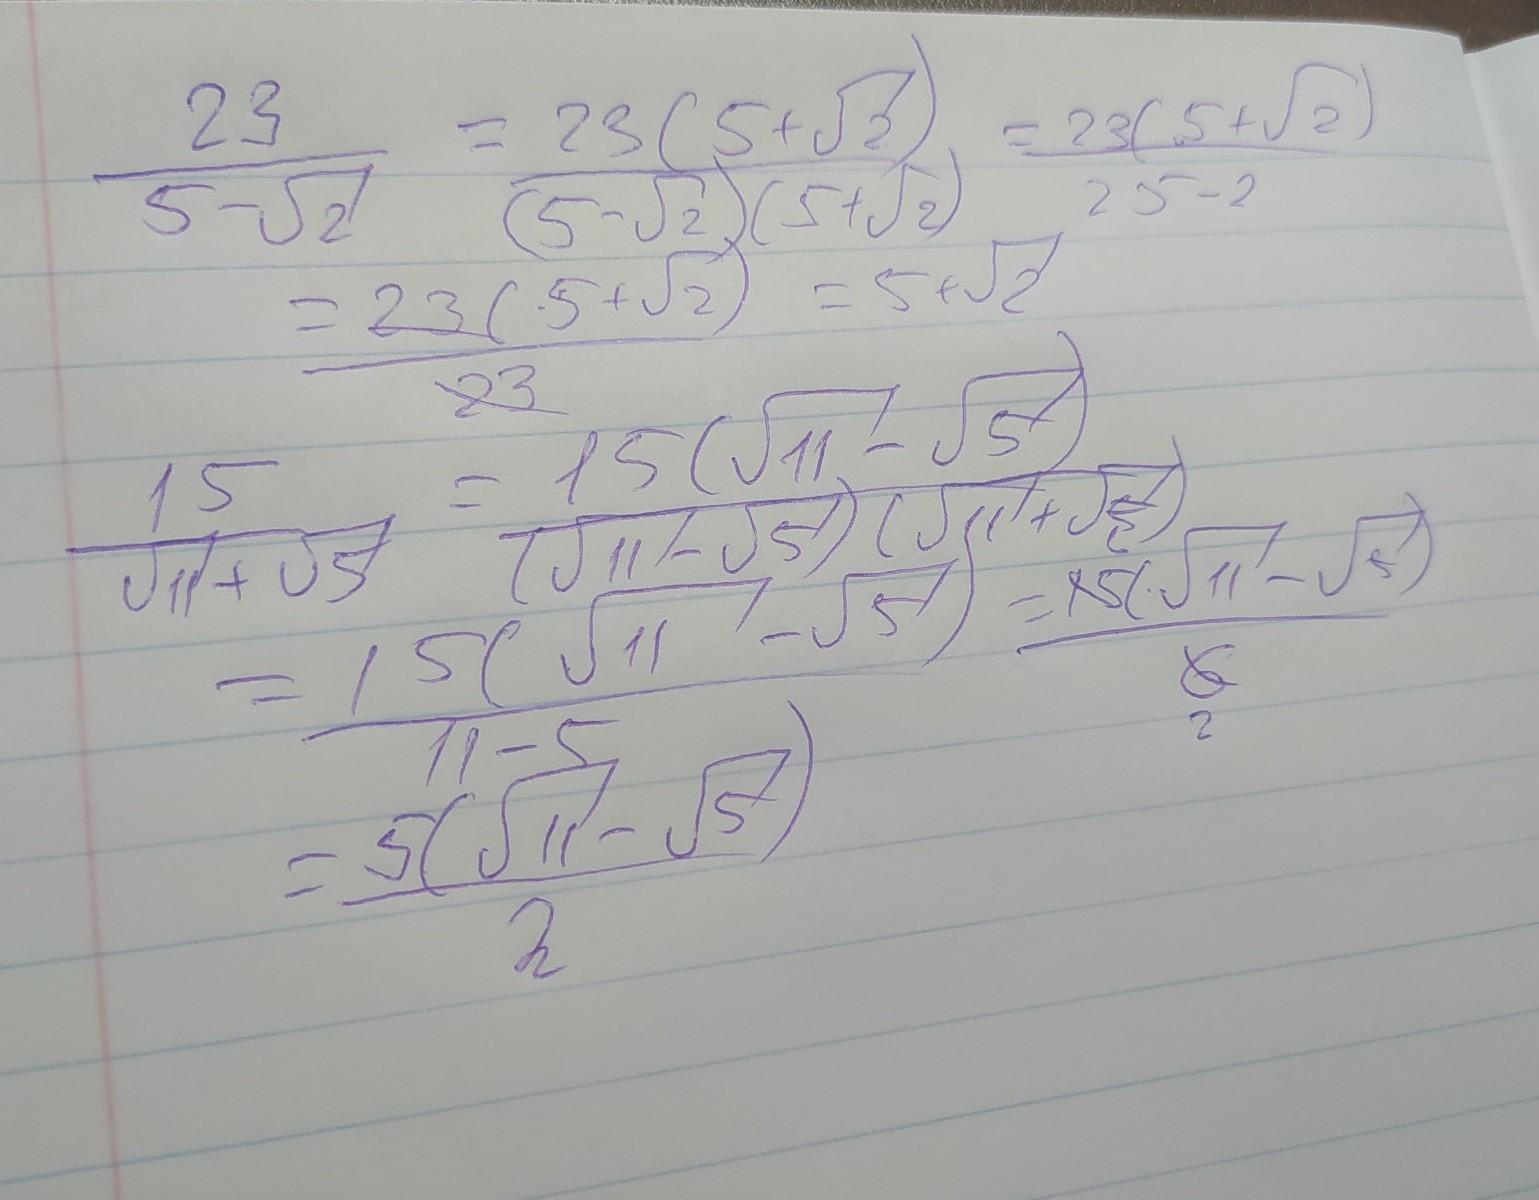 23/(5-√2) = 23(5+√2)/((5-√2)(5+√2)) = 23(5+√2)/(25-2)
= 23(5+√2)/23 = 5+√2
15/(√11+√5) = 15(√11-√5)/((√11-√5)(√11+√5))
= 15(√11-√5)/(11-5) = 15(√11-√5)/6 2
= 5(√11-√5)/2